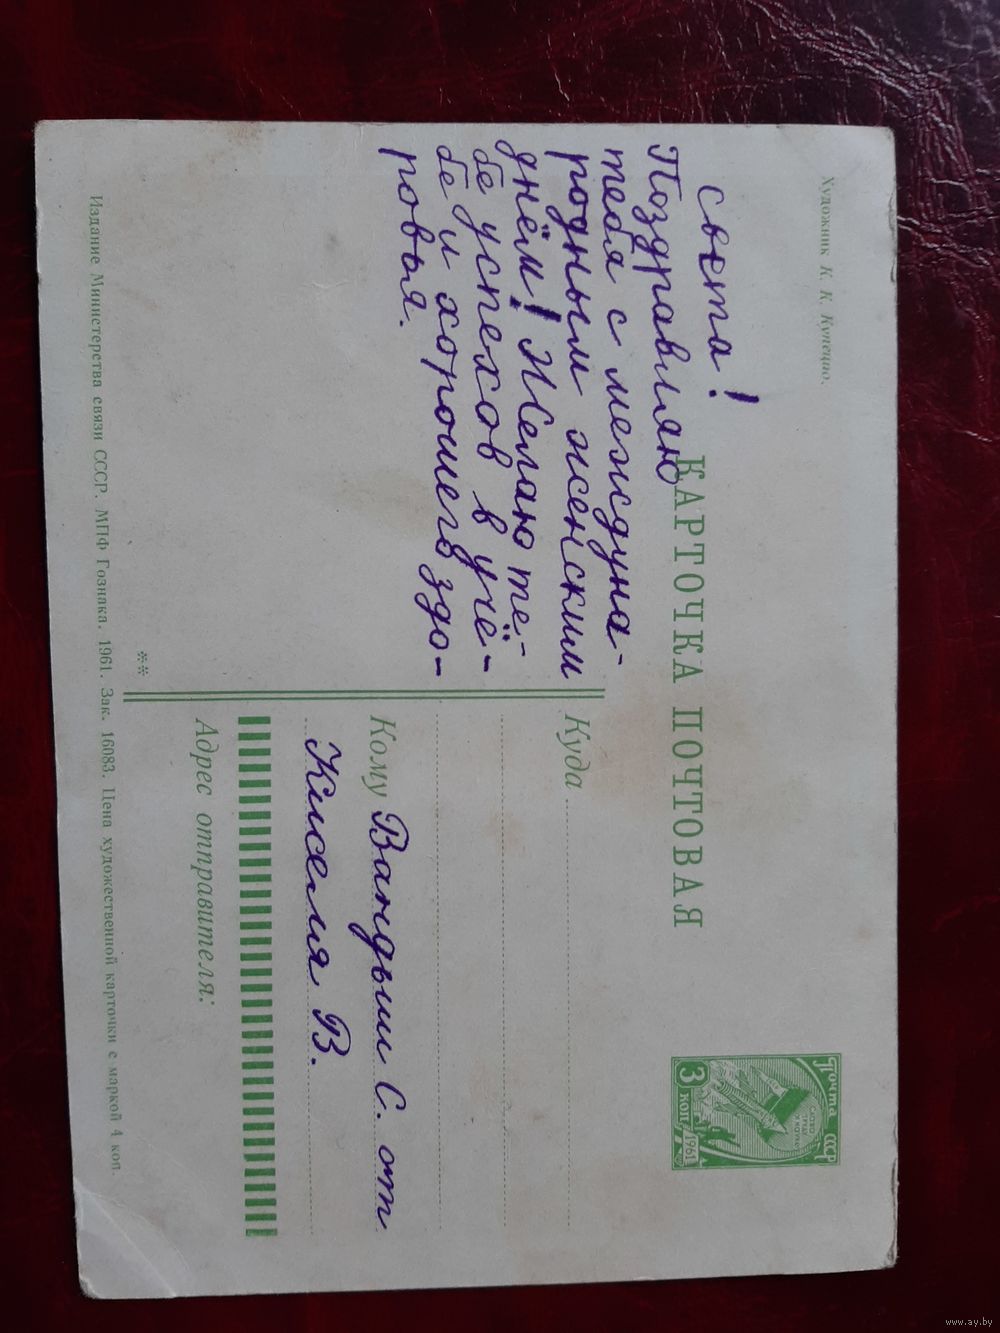 Художник К. К. Купецио.
КАРТОЧКА ПОЧТОВАЯ
Почта СССР
3 коп
1961
Света!
Поздравляю
тебя с междуна-
родным женским
днём! Желаю те-
бе успехов в учё-
бе и хорошего здо-
ровья.
Куда
Кому Вандыш С. от
Киселя В.
Адрес отправителя:
**
Издание Министерства связи СССР. МПФ Гознака. 1961. Зак. 16083. Цена художественной карточки с маркой 4 коп.
www.ay.by